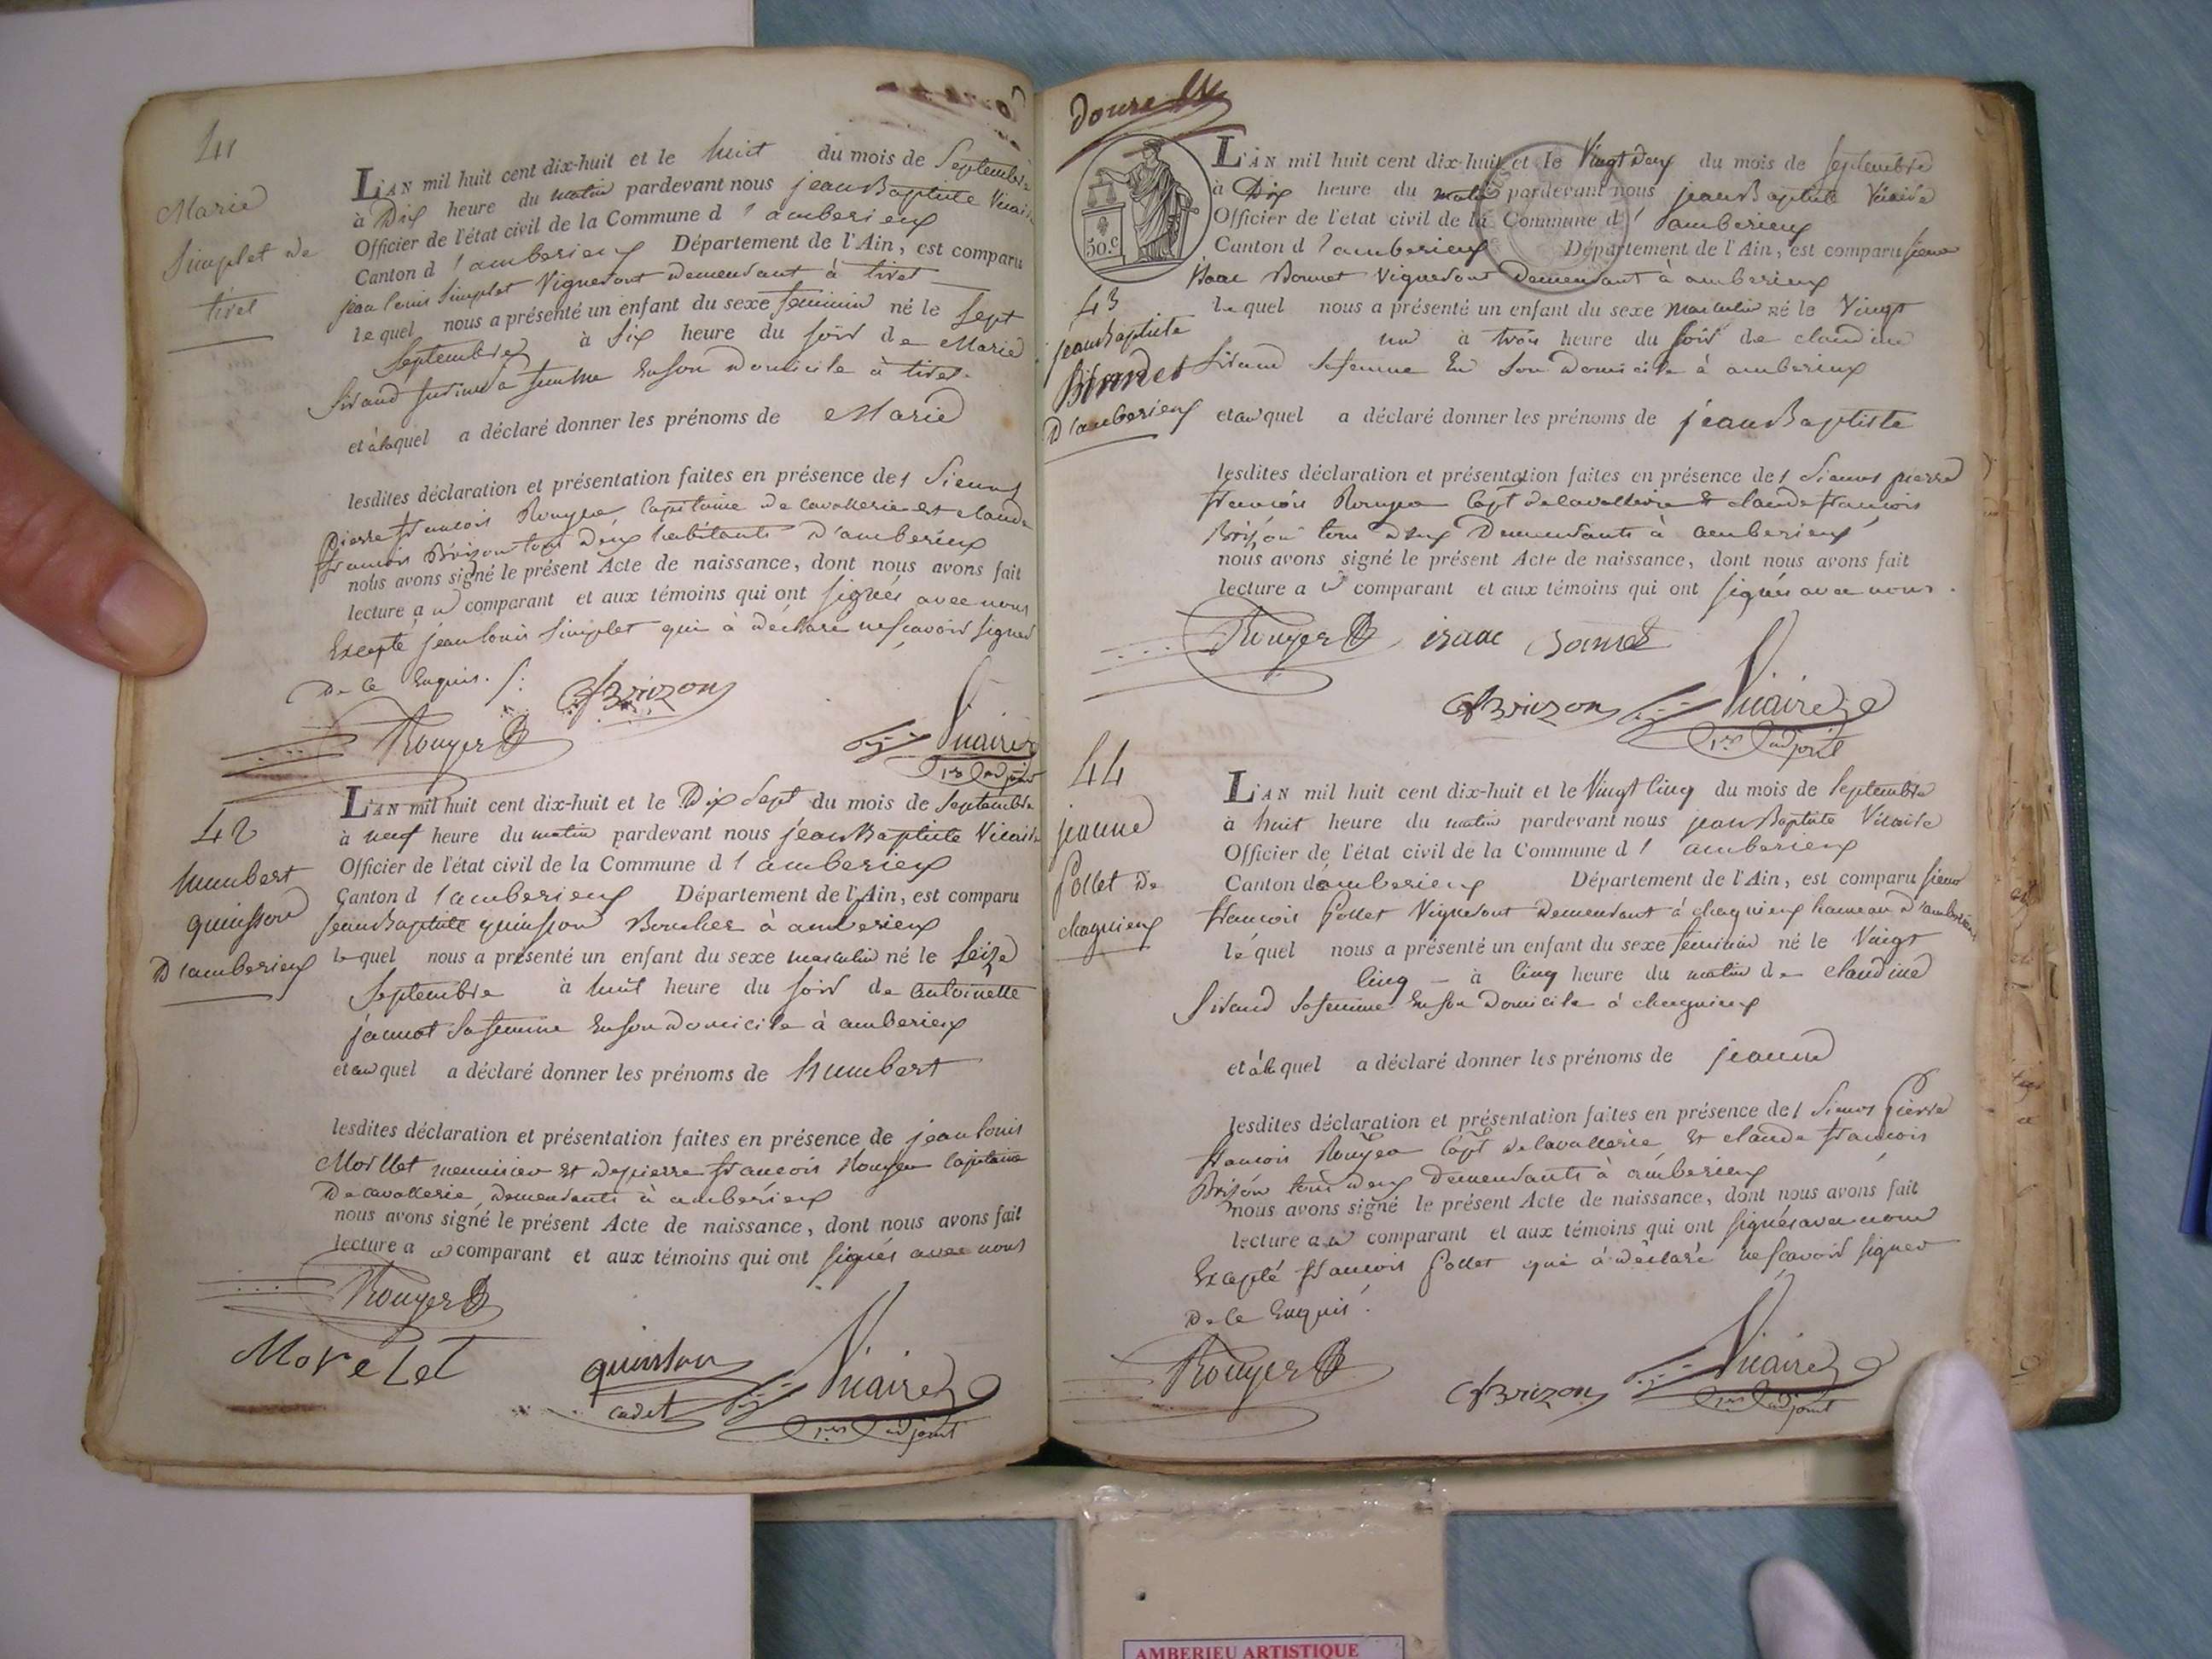 41
Marie
Simplet de
tiret
L'AN mil huit cent dix-huit et le huit du mois de Septembre
à Dix heure du matin pardevant nous jean Baptiste Vicaire
Officier de l'état civil de la Commune d'amberieux
Canton d'amberieux Département de l'Ain, est comparu
jean louis Simplet Vigneront Demeurant à tiret
lequel nous a présenté un enfant du sexe feminin né le Sept
Septembre à Six heure du soir de Marie
Sirand sa femme En son Domicile à tiret.
et à laquel a déclaré donner les prénoms de Marie
lesdites déclaration et présentation faites en présence des Sieurs
Pierre francois Rouyer Capitaine de cavallerie et claude
francois Brizon tous deux habitants D'amberieux
nous avons signé le présent Acte de naissance, dont nous avons fait
lecture au comparant et aux témoins qui ont signés avec nous
Excepté jean louis Simplet qui à déclaré ne scavoir signer
De ce Enquis.
CfBrizon
Rouyer
Vicaire
1er adjoint
42
humbert
quinson
D'amberieux
L'AN mil huit cent dix-huit et le Dix Sept du mois de Septembre
à neuf heure du matin pardevant nous jean Baptiste Vicaire
Officier de l'état civil de la Commune d'amberieux
Canton d'amberieux Département de l'Ain, est comparu
jean Baptiste quinson Boucher à amberieux
lequel nous a présenté un enfant du sexe masculin né le Seize
Septembre à huit heure du soir de antoinette
jannot sa femme En son Domicile à amberieux
et au quel a déclaré donner les prénoms de humbert
lesdites déclaration et présentation faites en présence de jean louis
Morllet menuisier et de pierre francois Rouyer Capitaine
De cavallerie, Demeurants à amberieux
nous avons signé le présent Acte de naissance, dont nous avons fait
lecture au comparant et aux témoins qui ont signés avec nous
Rouyer
Morelet
quinson
cadet
Vicaire
1er adjoint
Douze
50.c
43
jean Baptiste
Bonnet
D'amberieux
L'AN mil huit cent dix-huit et le Vingt Deux du mois de Septembre
à Dix heure du matin pardevant nous jean Baptiste Vicaire
Officier de l'état civil de la Commune d'amberieux
Canton d'amberieux Département de l'Ain, est comparu sieur
Isaac Bonnet Vigneront Demeurant à amberieux
lequel nous a présenté un enfant du sexe masculin né le Vingt
un à trois heure du soir de claudine
Sirand sa femme En Son Domicile à amberieux
et au quel a déclaré donner les prénoms de jean Baptiste
lesdites déclaration et présentation faites en présence des Sieurs pierre
francois Rouyer Capt de cavallerie & claude francois
Brizon tous deux Demeurants à amberieux
nous avons signé le présent Acte de naissance, dont nous avons fait
lecture au comparant et aux témoins qui ont signés avec nous.
Rouyer isaac Bonnet
CfBrizon Vicaire
1er adjoint
44
jeanne
Gollet de
chagnieux
L'AN mil huit cent dix-huit et le Vingt Cinq du mois de Septembre
à huit heure du matin pardevant nous jean Baptiste Vicaire
Officier de l'état civil de la Commune d'amberieux
Canton d'amberieux Département de l'Ain, est comparu sieur
francois Gollet Vigneront Demeurant à chagnieux hameau d'amberieux
lequel nous a présenté un enfant du sexe feminin né le Vingt
Cinq - à Cinq heure du matin de claudine
Sirand sa femme En son Domicile à chagnieux
et à la quel a déclaré donner les prénoms de jeanne
lesdites déclaration et présentation faites en présence des Sieurs Pierre
francois Rouyer Capt de cavallerie & claude francois
Brizon tous deux Demeurants à amberieux
nous avons signé le présent Acte de naissance, dont nous avons fait
lecture au comparant et aux témoins qui ont signés avec nous
Excepté francois Gollet qui à déclaré ne scavoir signer
De ce Enquis.
Rouyer
CfBrizon
Vicaire
1er adjoint
AMBERIEU ARTISTIQUE